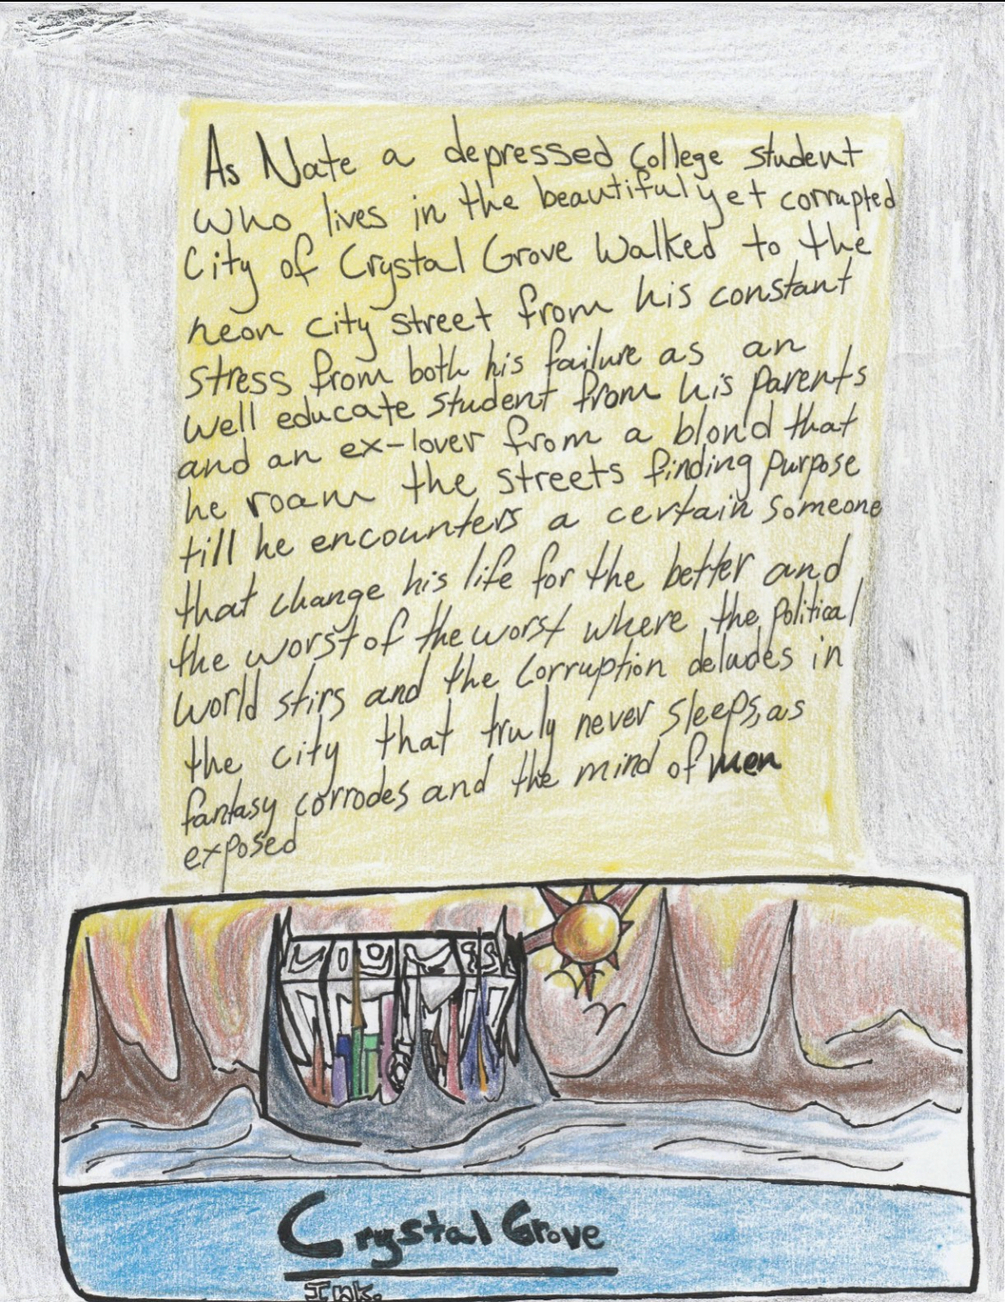 As Nate a depressed College student
who lives in the beautiful yet corrupted
City of Crystal Grove Walked to the
neon city street from his constant
stress from both his failure as an
well educate student from his parents
and an ex-lover from a blond that
he roam the streets finding purpose
till he encounters a certain someone
that change his life for the better and
the worst of the worst where the political
world stirs and the corruption deludes in
the city that truly never sleeps, as
fantasy corrodes and the mind of men
exposed
Crystal Grove
Ink.